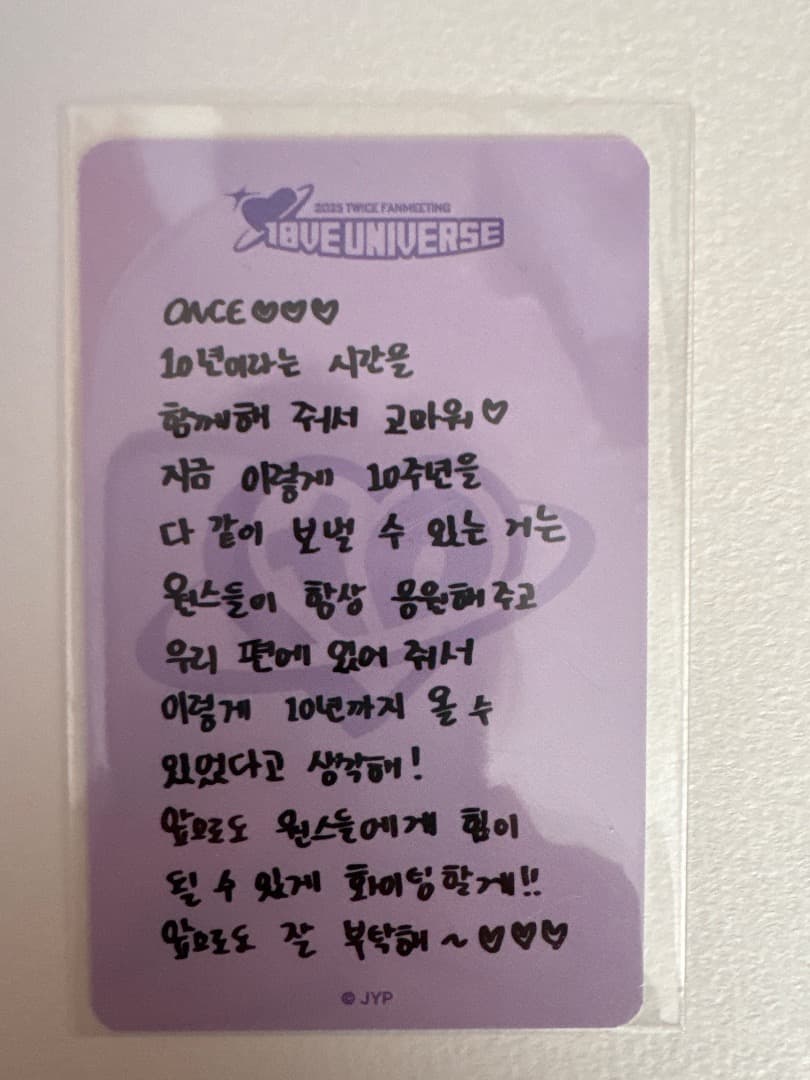 2025 TWICE FANMEETING
10VE UNIVERSE
ONCE♡♡♡
10년이라는 시간을
함께해 줘서 고마워♡
지금 이렇게 10주년을
다 같이 보낼 수 있는 거는
원스들이 항상 응원해주고
우리 편에 있어 줘서
이렇게 10년까지 올 수
있었다고 생각해!
앞으로도 원스들에게 힘이
될 수 있게 화이팅할게!!
앞으로도 잘 부탁해~♡♡♡
© JYP